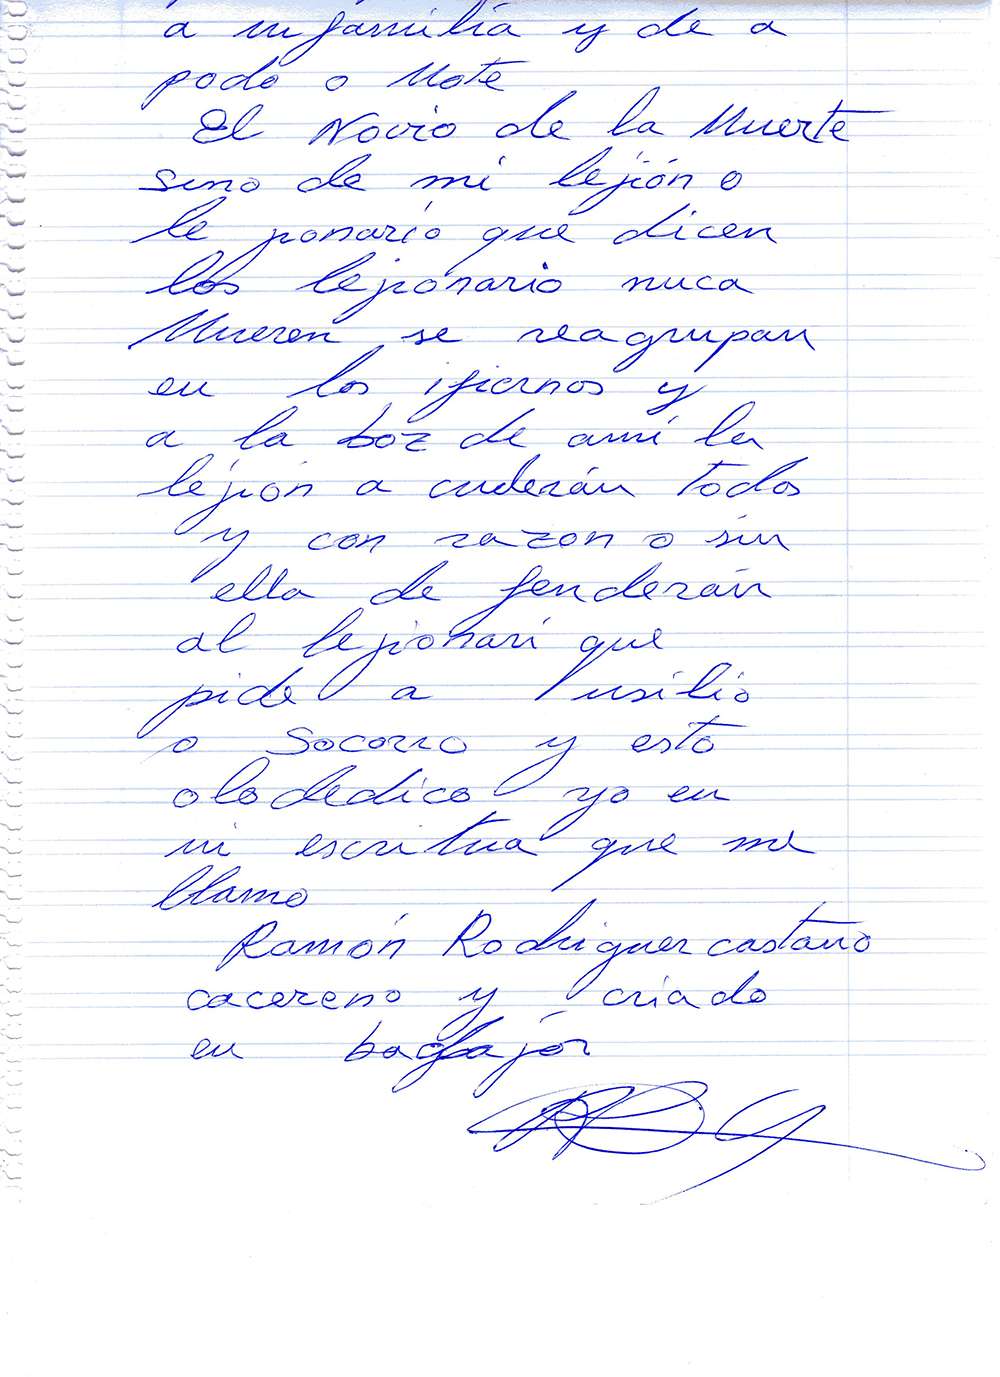 a mfamilia y de a
podo o Mote
El Novio de la Muerte
sino de mi lejión o
le jonario que dicen
los lejionario nuca
Mueren se reagrupan
en los ifiernos y
a la boz de ami la
lejión a cuderán todos
y con razon o sin
ella de fenderán
al lejionari que
pide a usilio
o Socorro y esto
olo dedico yo en
mi escritua que me
llamo
Ramón Rodriguez castano
cacereno y criado
en